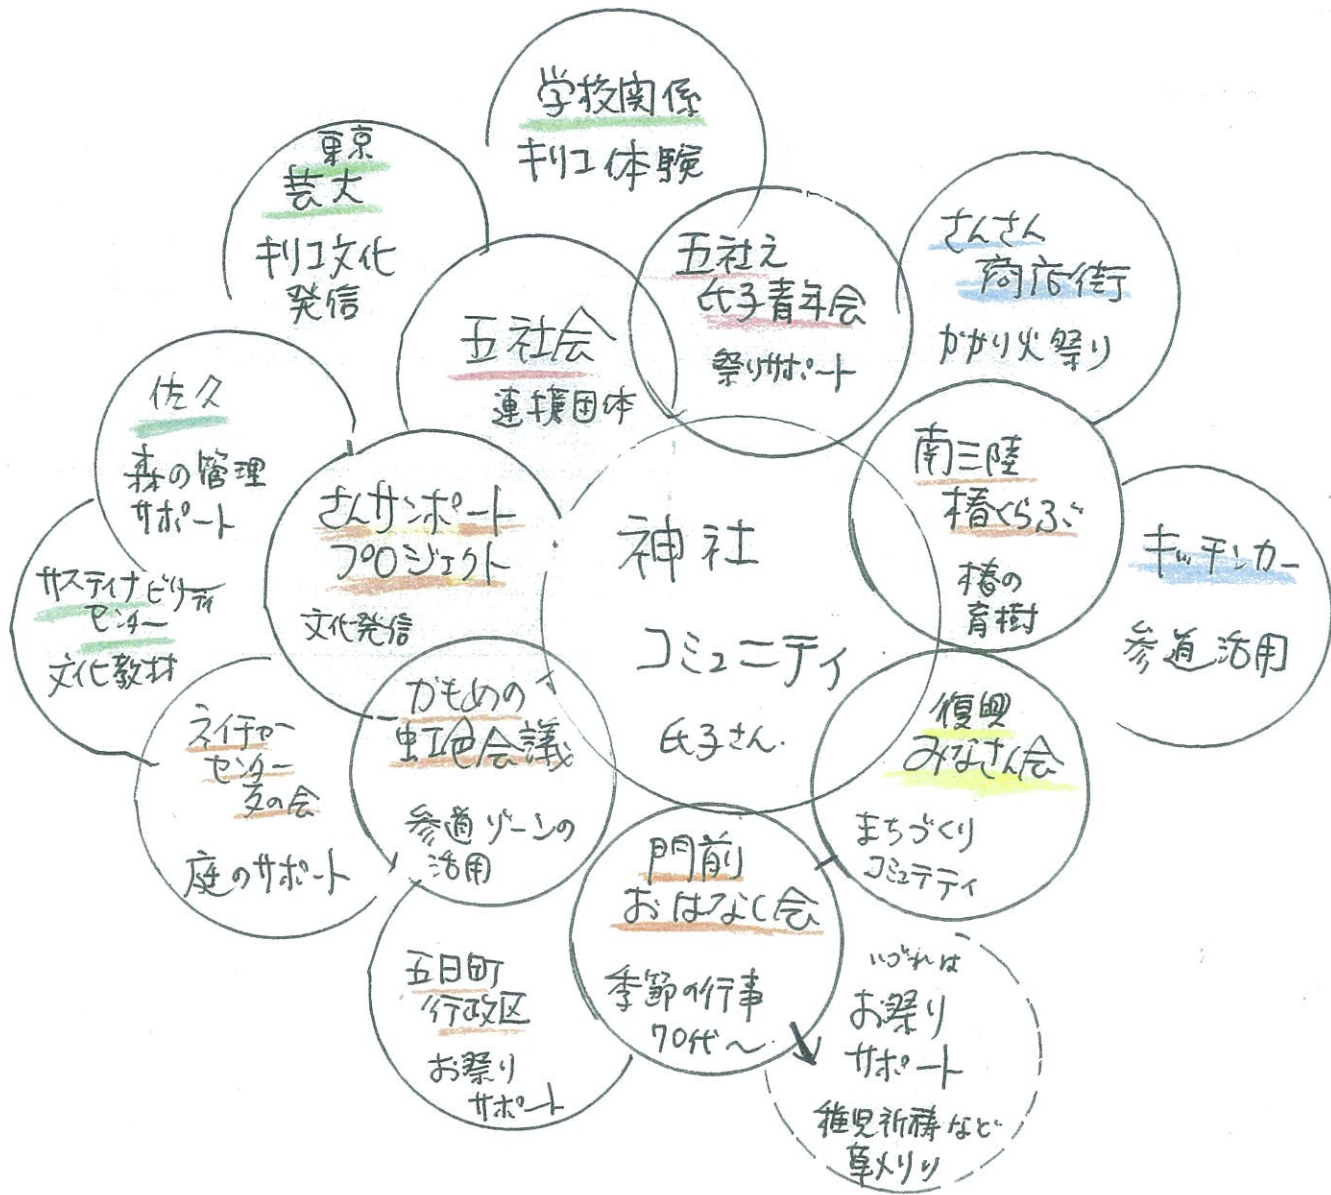 学校関係
キリコ体験
東京
芸大
キリコ文化
発信
五社会
連携団体
五社え
氏子青年会
祭りサポート
さんさん
商店街
かがり火祭り
佐久
森の管理
サポート
さんサンポート
プロジェクト
文化発信
神社
コミュニティ
氏子さん.
南三陸
椿くらぶ
椿の
育樹
キッチンカー
参道活用
サスティナビリティ
センター
文化教材
ネイチャー
センター
友の会
庭のサポート
かもめの
虹色会議
参道ゾーンの
活用
復興
みなさん会
まちづくり
コミュテティ
門前
おはなし会
季節の行事
70代〜
五日町
行政区
お祭り
サポート
いづれは
お祭り
サポート
稚児祈祷など
草刈り